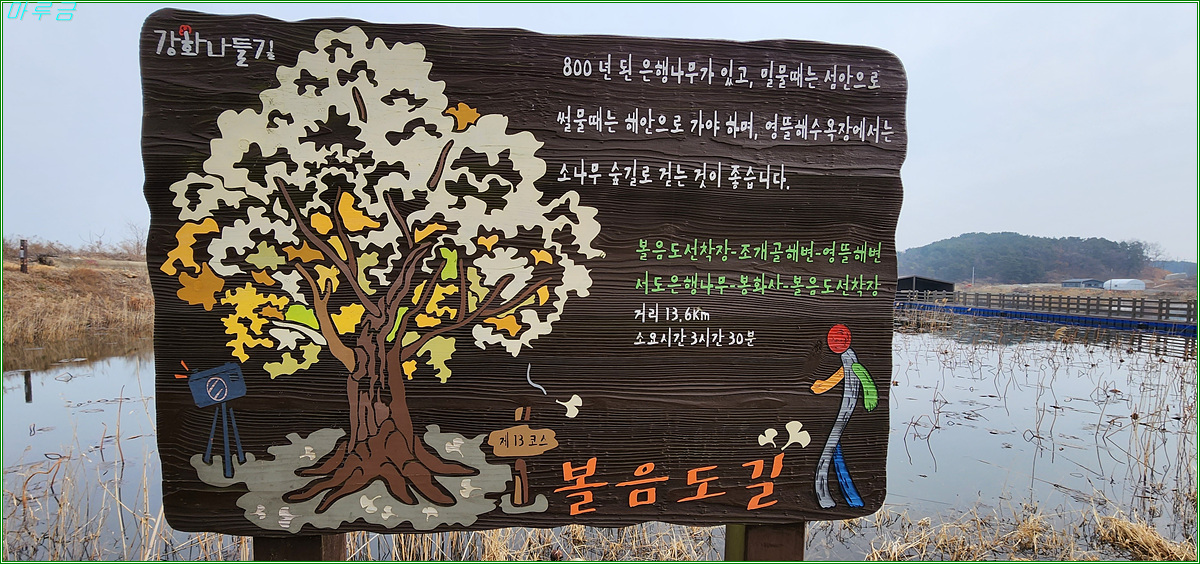 마루금
강화나들길
800년 된 은행나무가 있고, 밀물때는 섬안으로
썰물때는 해안으로 가야 하며, 영뜰해수욕장에서는
소나무 숲길로 걷는 것이 좋습니다.
볼음도선착장-조개골해변-영뜰해변
서도은행나무-봉화산-볼음도선착장
거리 13.6Km
소요시간 3시간 30분
제13코스
볼음도길